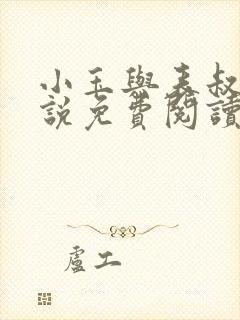 小玉與表叔
說免費閱讀
盧工